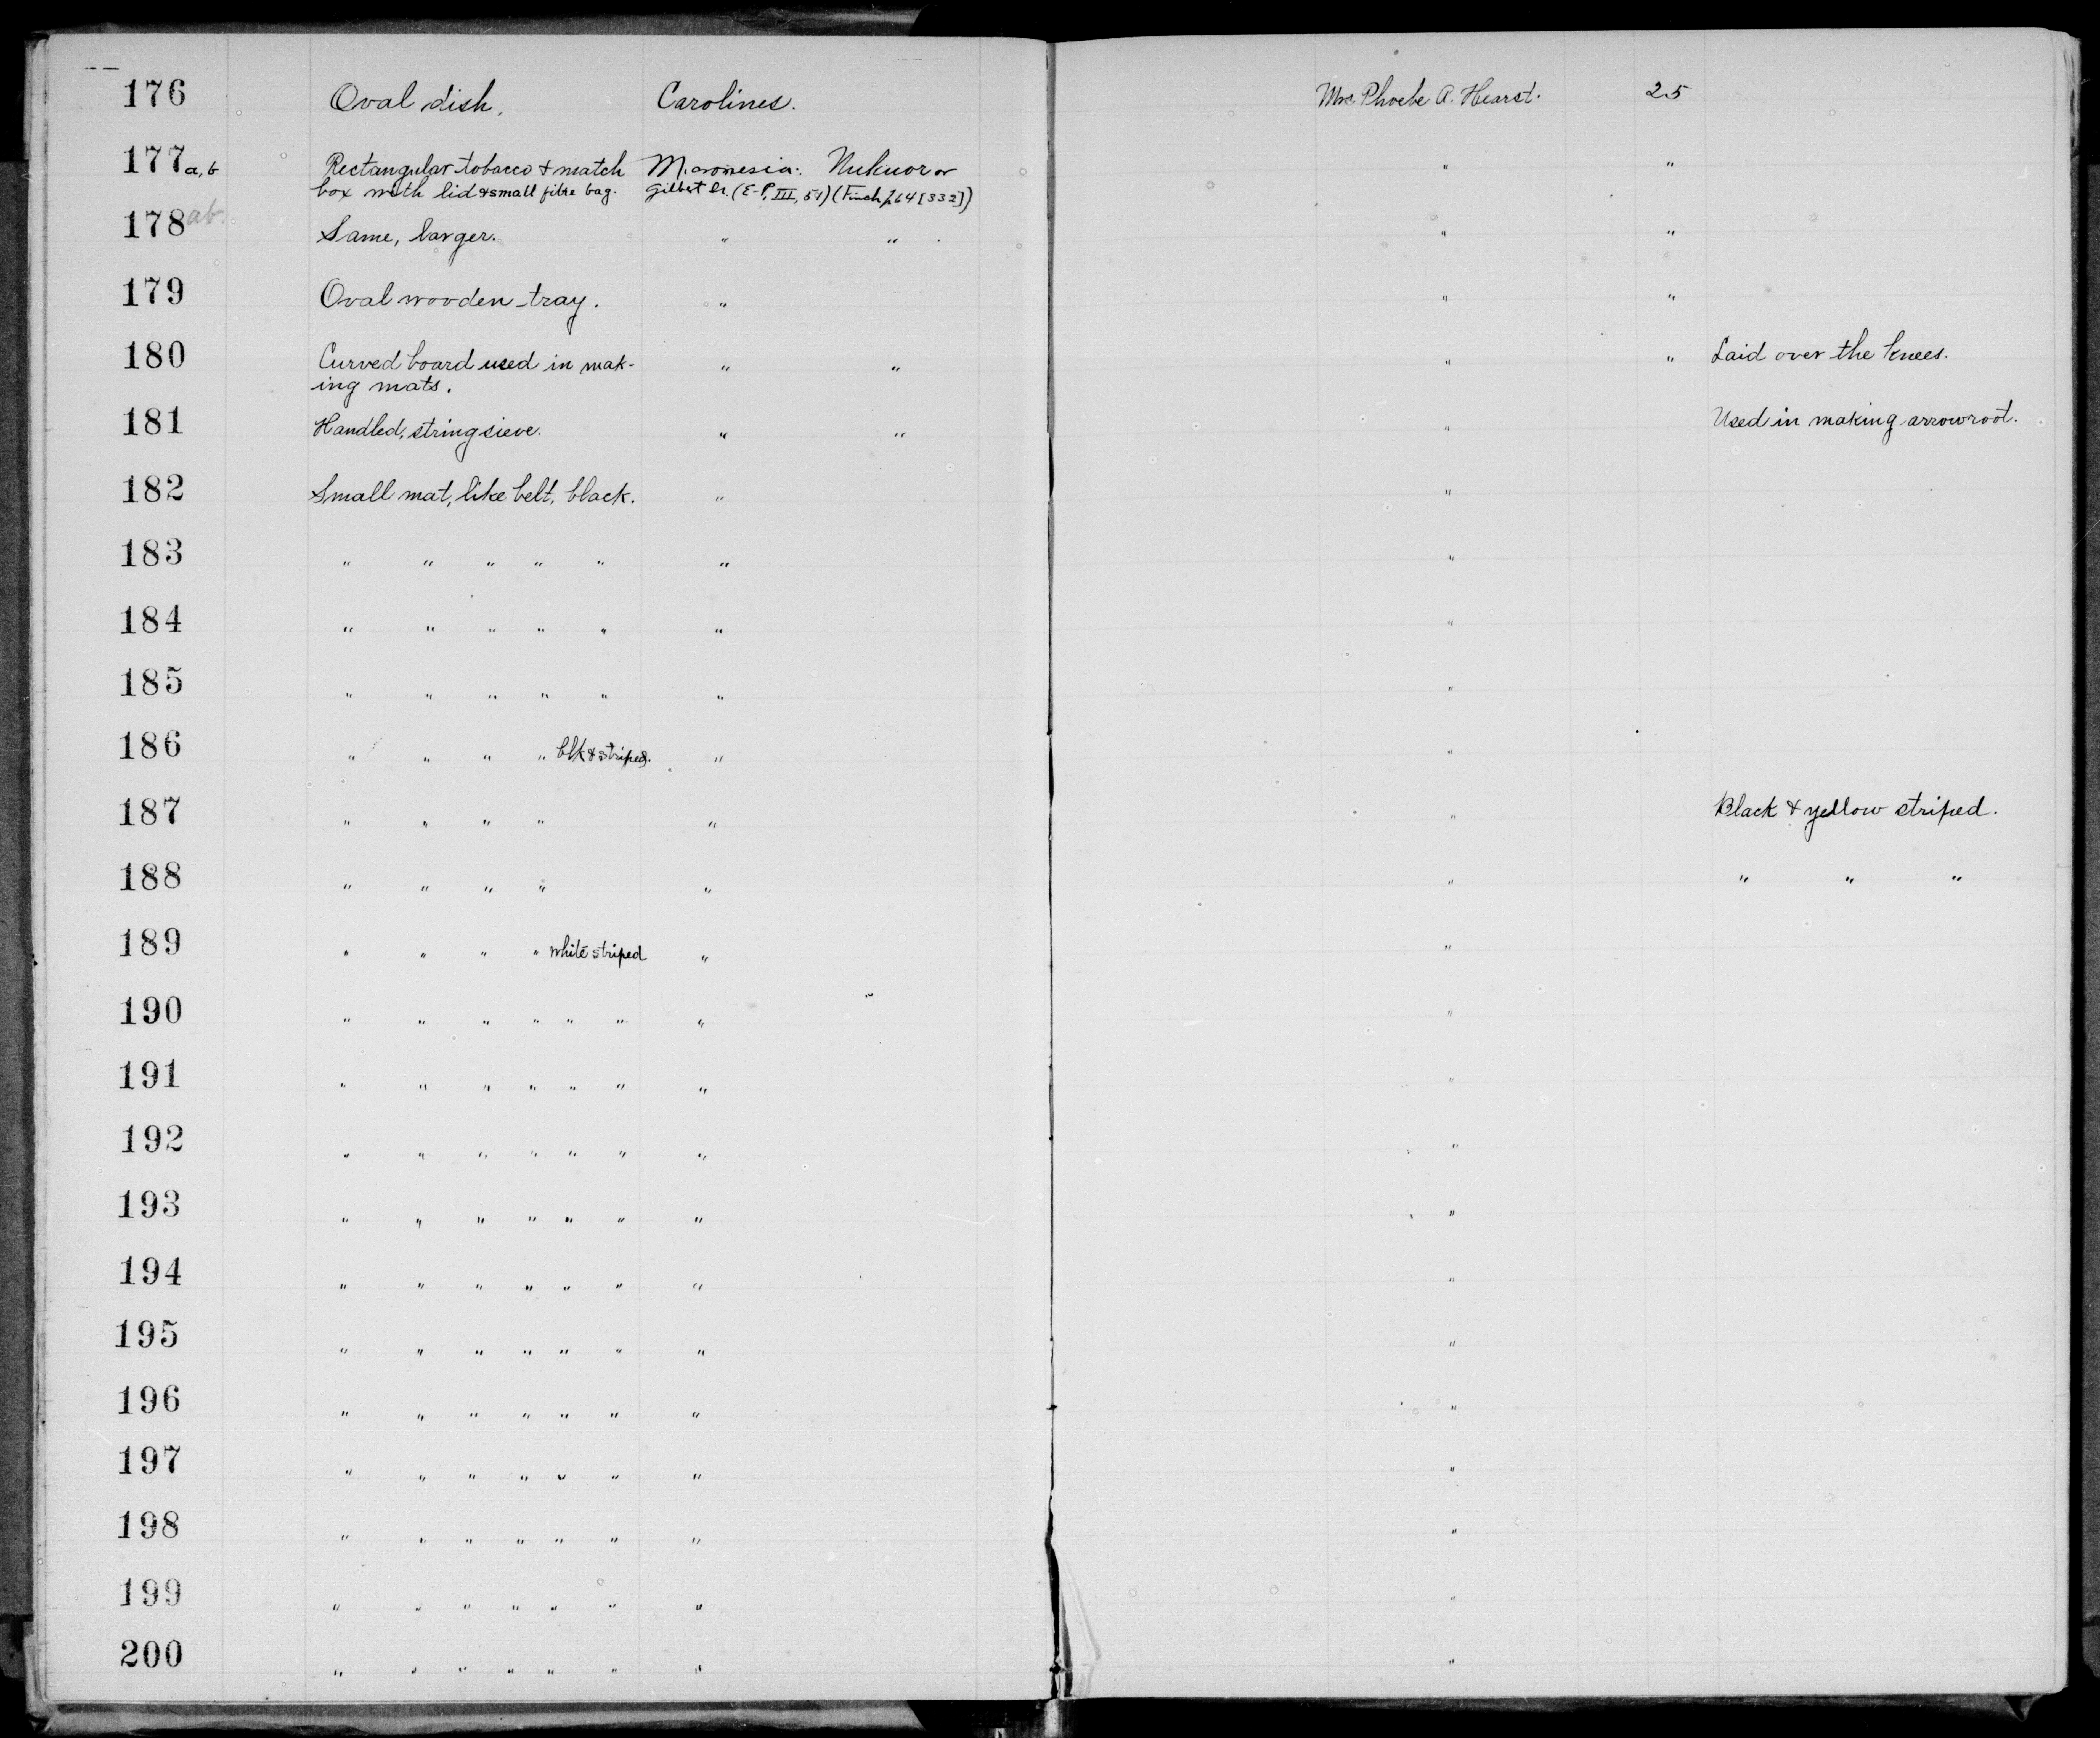 176 Oval dish, Carolines. Mrs. Phoebe A. Hearst. 25
177 a, b Rectangular tobacco & match Micronesia: Nukuor or " "
box with lid & small fibre bag. Gilbert Is. (E-P, III, 51) (Finch, 64 [332])
178 ab. Same, larger. " " " "
179 Oval wooden tray. " " "
180 Curved board used in mak- " " " " Laid over the knees.
ing mats.
181 Handled, string sieve. " " " Used in making arrowroot.
182 Small mat, like belt, black. " "
183 " " " " " " "
184 " " " " " " "
185 " " " " " " "
186 " " " " blk & striped. " "
187 " " " " " " Black & yellow striped.
188 " " " " " " " " "
189 " " " " white striped " "
190 " " " " " " " "
191 " " " " " " " "
192 " " " " " " " "
193 " " " " " " " "
194 " " " " " " " "
195 " " " " " " " "
196 " " " " " " " "
197 " " " " " " " "
198 " " " " " " " "
199 " " " " " " " "
200 " " " " " " " "